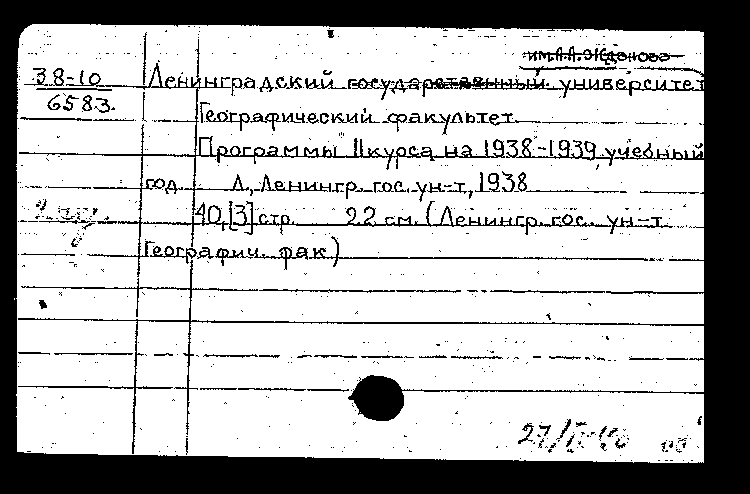 им. А.А. Жданова
38-10
6583.
Ленинградский государственный университет
Географический факультет.
Программы II курса на 1938-1939 учебный
год. Л., Ленингр. гос. ун-т, 1938
40, [3] стр. 22 см. (Ленингр. гос. ун-т.
Географич. фак)
27/IV